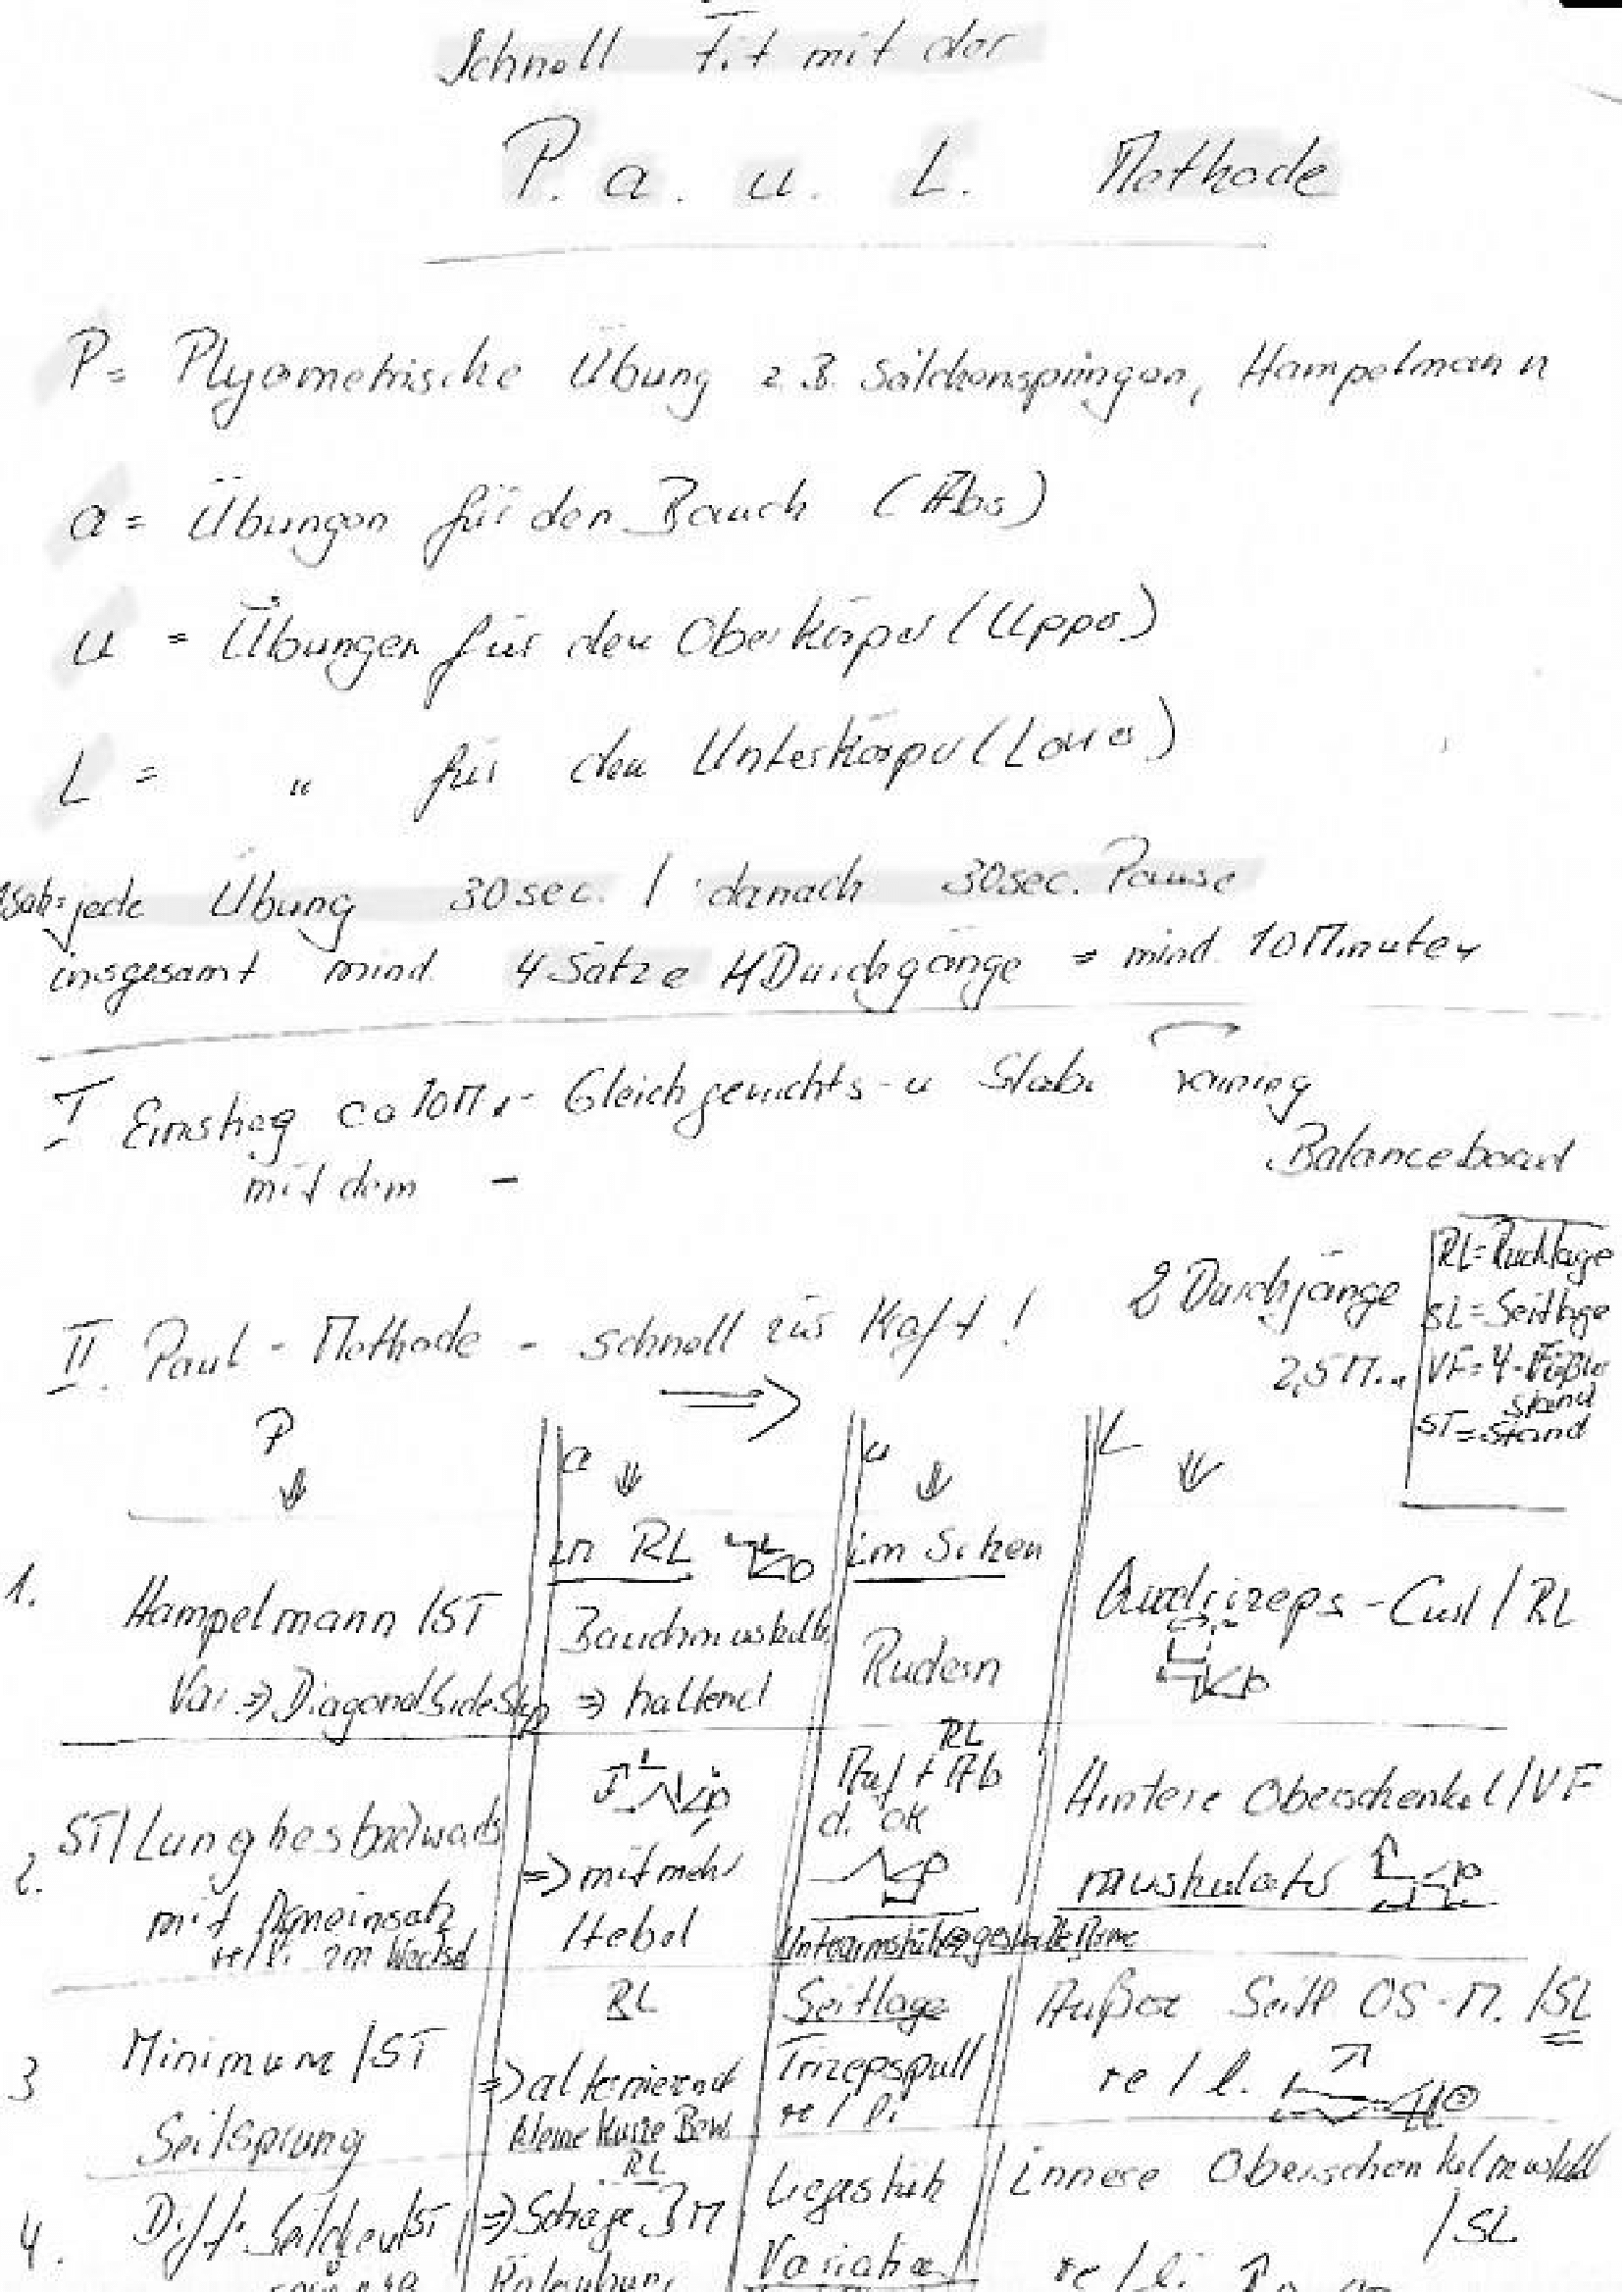 Schnell Fit mit der
P. a. u. L. Methode
P = Plyometrische Übung z.B. Seilchenspringen, Hampelmann
a = Übungen für den Bauch (Abs)
u = Übungen für den Oberkörper (Upper)
L = " für den Unterkörper (Lower)
jede Übung 30 sec. / danach 30 sec. Pause
insgesamt mind. 4 Sätze 4 Durchgänge = mind. 10 Minuten
I Einstieg ca 10 Min Gleichgewichts- u Stabi Training
mit dem - Balanceboard
RL = Rücklage
SL = Seitlage
VF = 4-Füßler
stand
ST = Stand
2 Durchgänge
2,5 Min
II. Paul - Methode - schnell zur Kraft!
P a u L
1. Hampelmann /ST
Var => Diagonal Sidestep
in RL
Bauchmuskeln
=> haltend
im Sitzen
Rudern
Quadrizeps - Curl / RL
2. ST/ Lunghes
mit Armeinsatz
re/li im Wechsel
=> mit mehr
Hebel
RL
Auf + Ab
d. OK
Unterarmstütz
Hintere Oberschenkel /VF
muskulatur
3 Minimum /ST
Seitsprung
RL
=> alternierend
kleine kurze Bew.
Seitlage
Trizepspull
re / li
Äußere Seitl OS-M. /SL
re / l.
4. Diff. Seilchen /ST
RL
=> Schräge BM
Liegestütz
Variation
innere Oberschenkelmuskel
/ SL
re / li